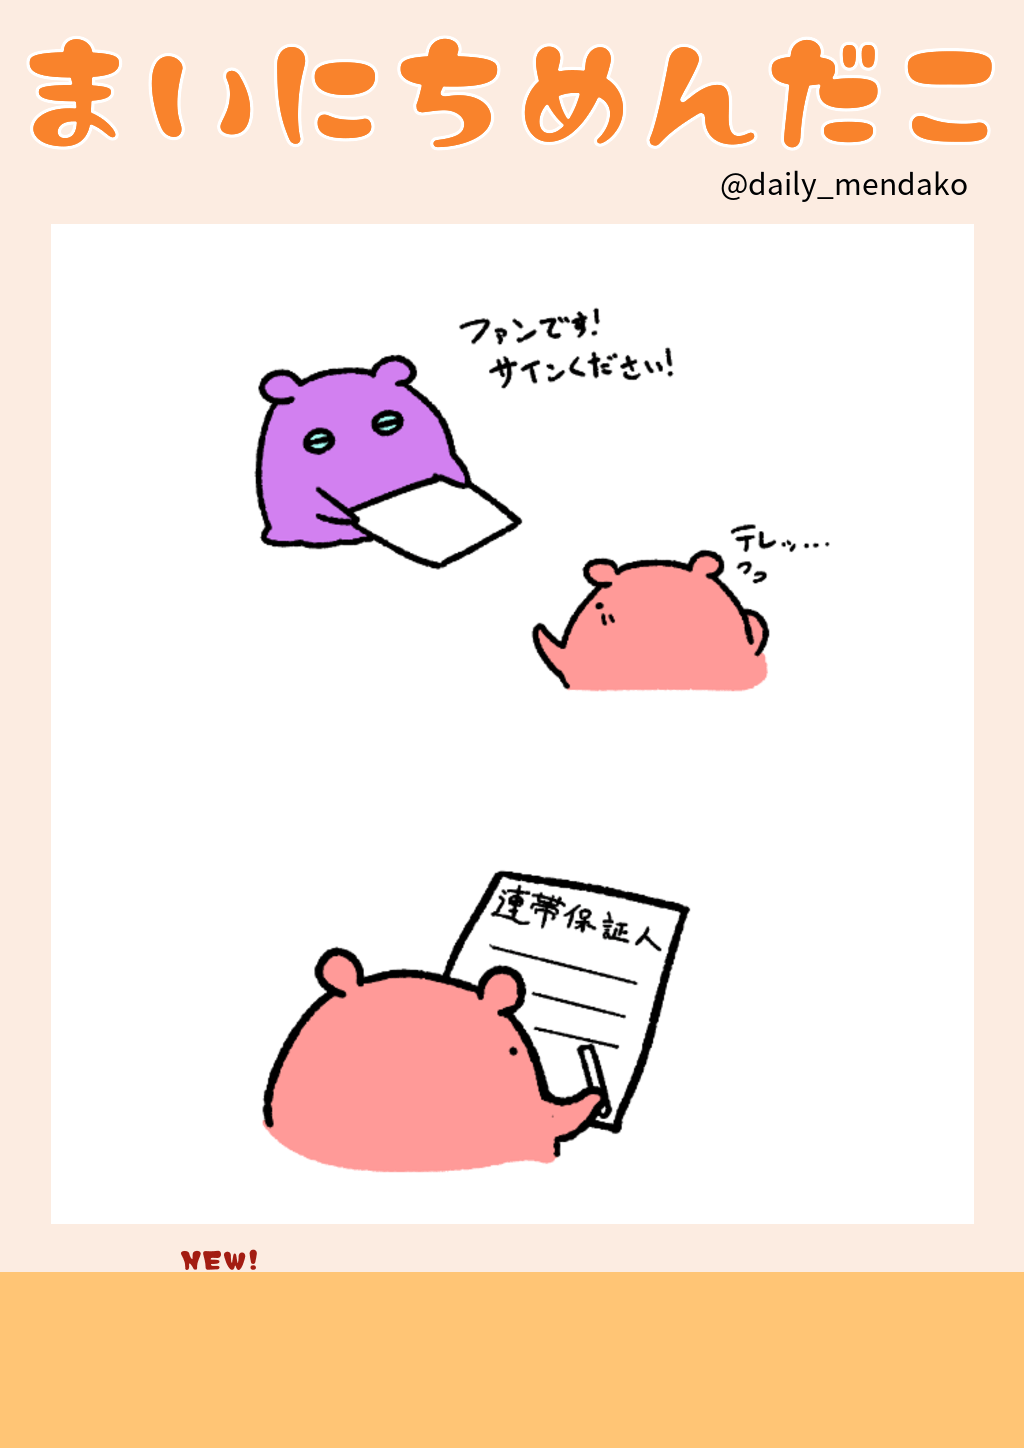 まいにちめんだこ
@daily_mendako
ファンです!
サインください!
テレッ...
連帯保証人
NEW!